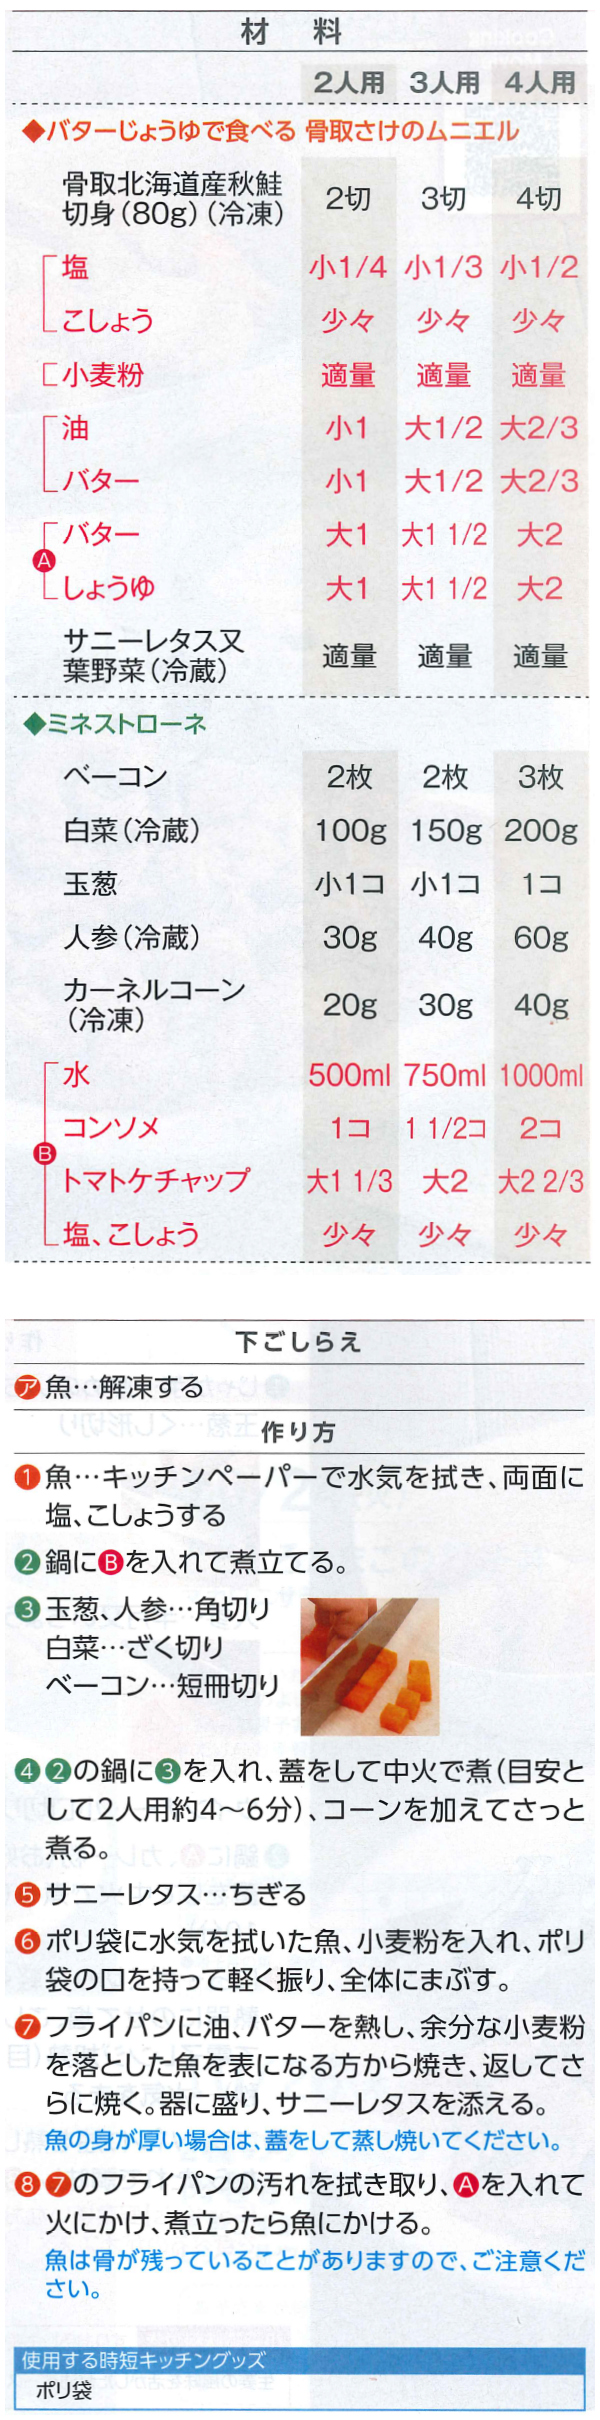 材　料
2人用 3人用 4人用
◆バターじょうゆで食べる 骨取さけのムニエル
骨取北海道産秋鮭
切身(80g)(冷凍) 2切 3切 4切
塩 小1/4 小1/3 小1/2
こしょう 少々 少々 少々
小麦粉 適量 適量 適量
油 小1 大1/2 大2/3
バター 小1 大1/2 大2/3
Ⓐ
バター 大1 大1 1/2 大2
しょうゆ 大1 大1 1/2 大2
サニーレタス又
葉野菜(冷蔵) 適量 適量 適量
◆ミネストローネ
ベーコン 2枚 2枚 3枚
白菜(冷蔵) 100g 150g 200g
玉葱 小1コ 小1コ 1コ
人参(冷蔵) 30g 40g 60g
カーネルコーン
(冷凍) 20g 30g 40g
Ⓑ
水 500ml 750ml 1000ml
コンソメ 1コ 1 1/2コ 2コ
トマトケチャップ 大1 1/3 大2 大2 2/3
塩、こしょう 少々 少々 少々
下ごしらえ
㋐魚…解凍する
作り方
❶魚…キッチンペーパーで水気を拭き、両面に
塩、こしょうする
❷鍋にⒷを入れて煮立てる。
❸玉葱、人参…角切り
白菜…ざく切り
ベーコン…短冊切り
❹❷の鍋に❸を入れ、蓋をして中火で煮(目安と
して2人用約4～6分)、コーンを加えてさっと
煮る。
❺サニーレタス…ちぎる
❻ポリ袋に水気を拭いた魚、小麦粉を入れ、ポリ
袋の口を持って軽く振り、全体にまぶす。
❼フライパンに油、バターを熱し、余分な小麦粉
を落とした魚を表になる方から焼き、返してさ
らに焼く。器に盛り、サニーレタスを添える。
魚の身が厚い場合は、蓋をして蒸し焼いてください。
❽❼のフライパンの汚れを拭き取り、Ⓐを入れて
火にかけ、煮立ったら魚にかける。
魚は骨が残っていることがありますので、ご注意くだ
さい。
使用する時短キッチングッズ
ポリ袋